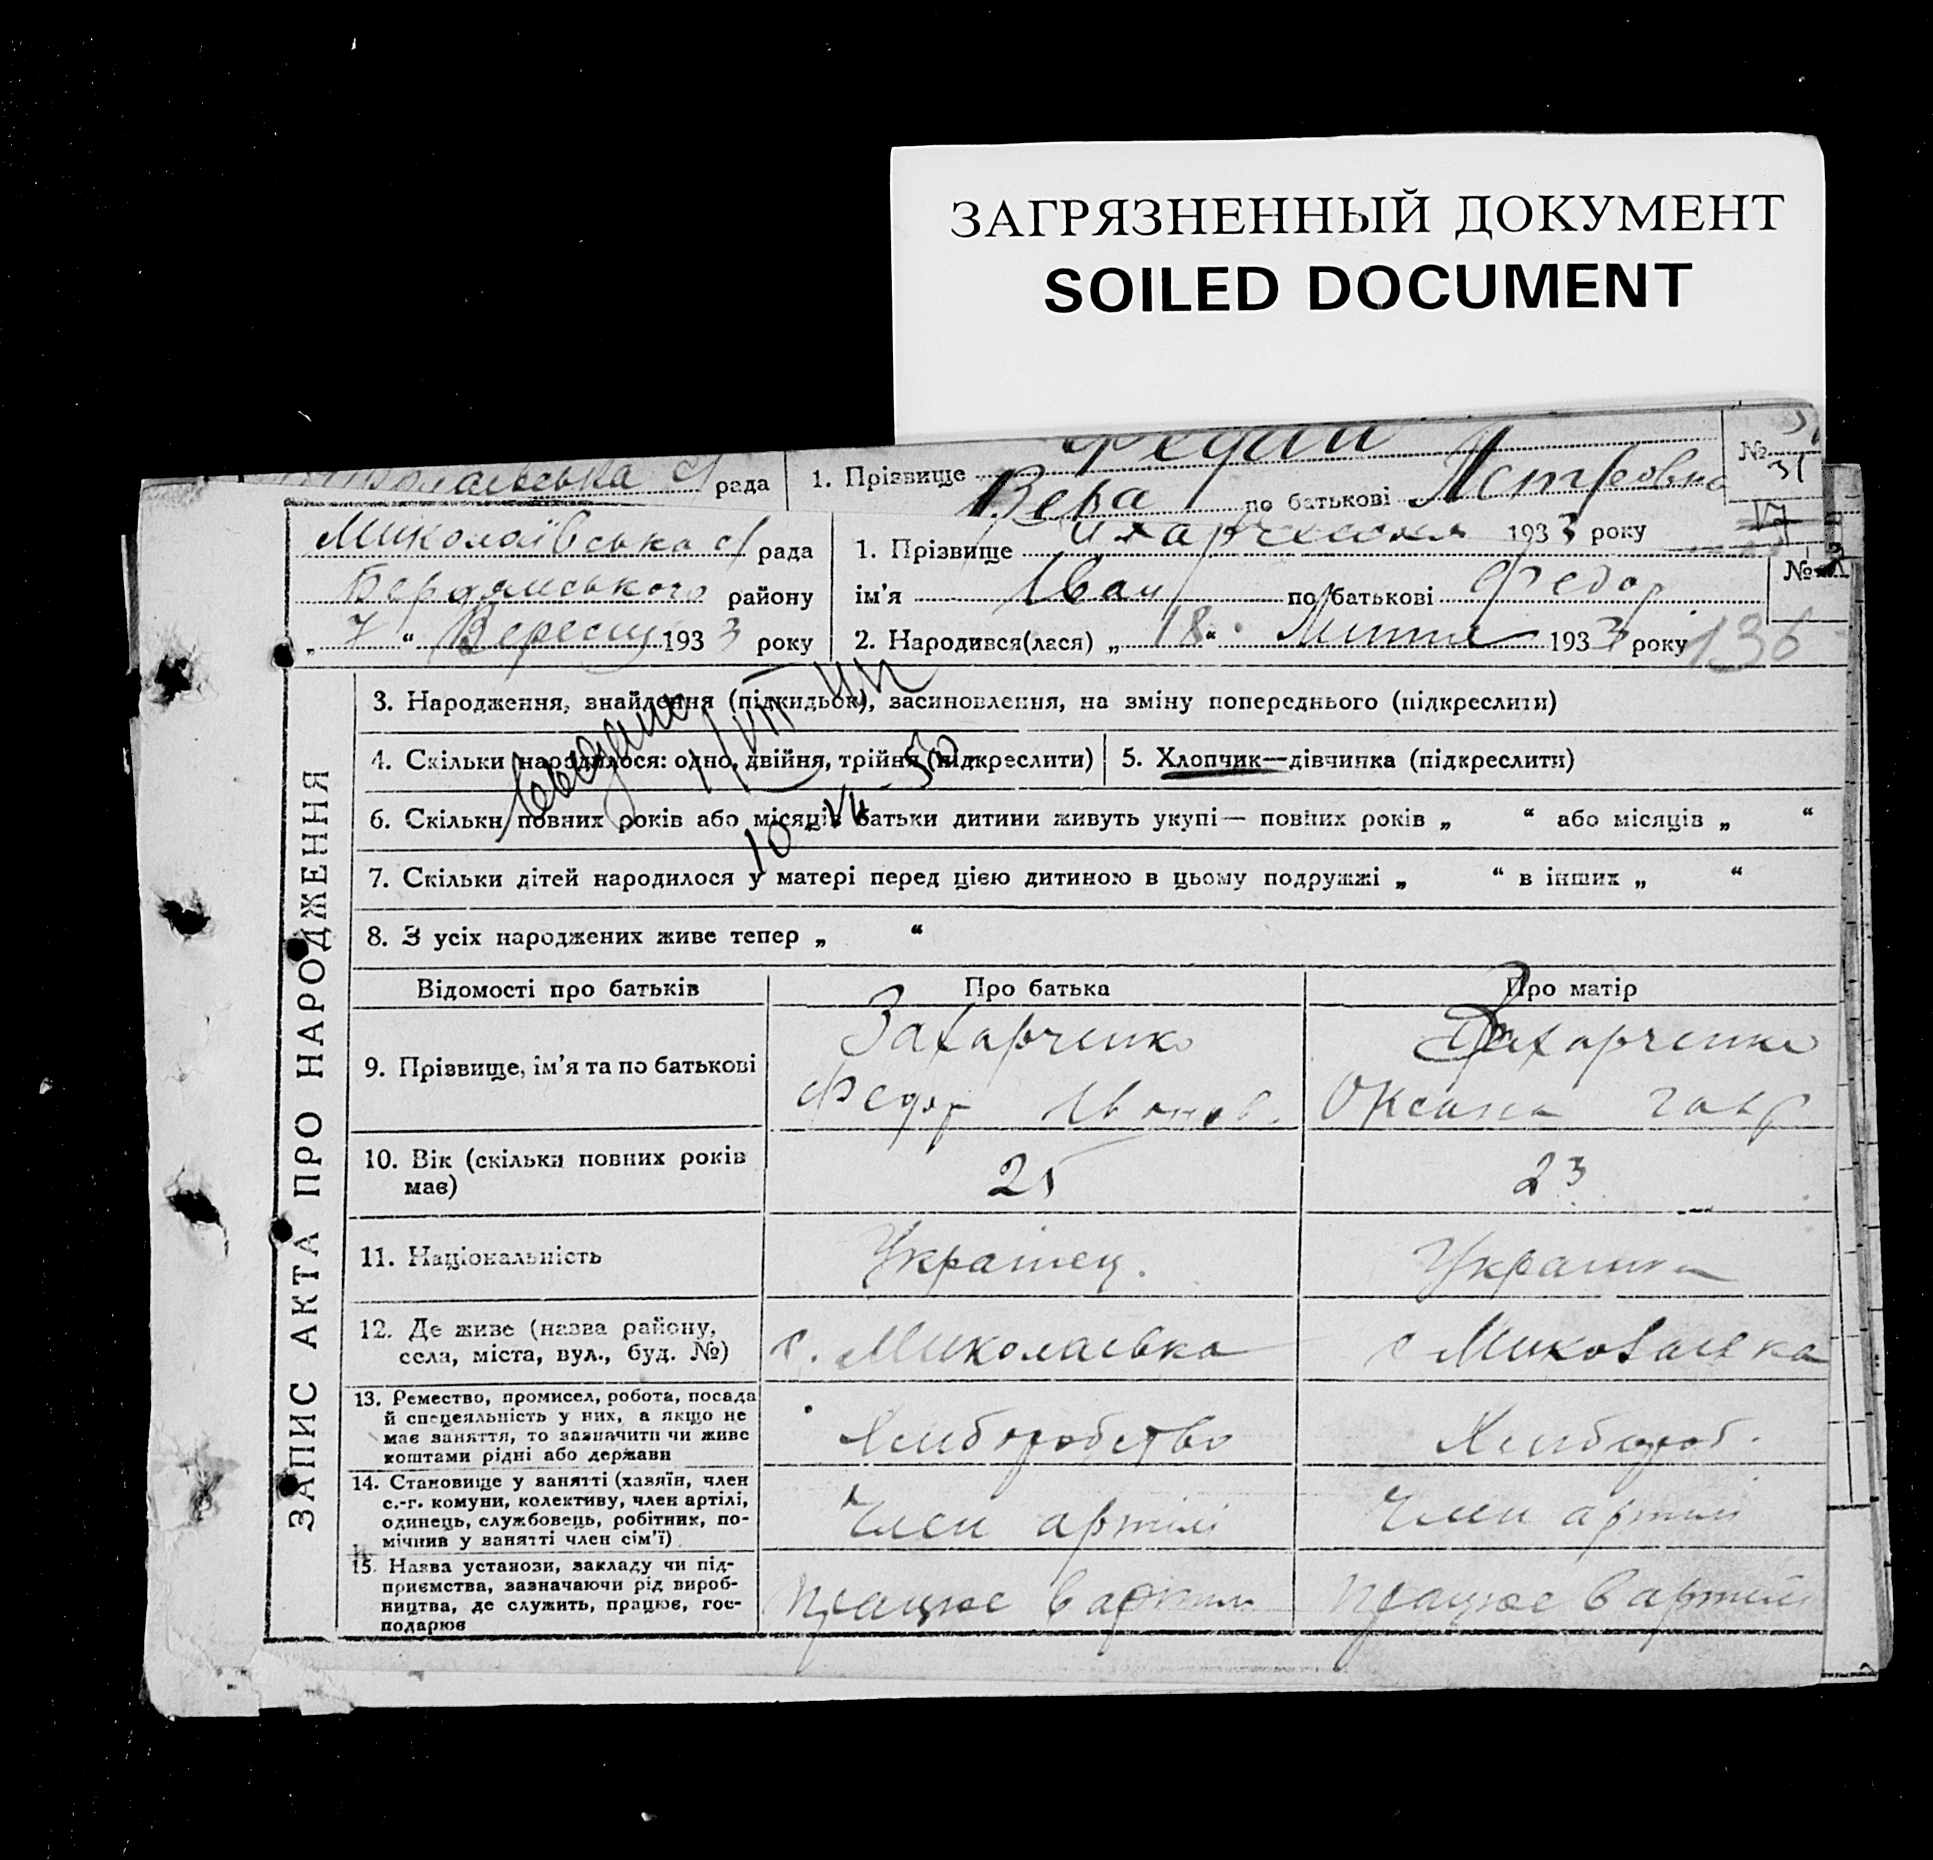 ЗАГРЯЗНЕННЫЙ ДОКУМЕНТ
SOILED DOCUMENT
рада 1. Прізвище Федай №
Вера по батькові Петровна 31
1933 року
Миколаївська с/ рада 1. Прізвище Захарченко
Бердянського району ім'я Іван по батькові Федор №
„ 7 “ Вересня 1933 року 2. Народився(лася) „ 18 “ Липня 1933 року 136
ЗАПИС АКТА ПРО НАРОДЖЕННЯ
3. Народження, знайдення (підкидьок), засиновлення, на зміну попереднього (підкреслити)
4. Скільки народилося: одно, двійня, трійня (підкреслити) 5. Хлопчик—дівчинка (підкреслити)
6. Скільки повних років або місяців батьки дитини живуть укупі— повних років „ “ або місяців „ “
7. Скільки дітей народилося у матері перед цією дитиною в цьому подружжі „ “ в інших „ “
8. З усіх народжених живе тепер „ “
Відомості про батьків Про батька Про матір
9. Прізвище, ім'я та по батькові
Захарченко Захарченко
Федор Іванов. Оксана Гавр
10. Вік (скільки повних років
має) 25 23
11. Національність Українец. Українка
12. Де живе (назва району,
села, міста, вул., буд. №) с. Миколаевка с Миколаевка
13. Ремество, промисел, робота, посада
й спецеяльність у них, а якщо не
має заняття, то зазначити чи живе
коштами рідні або держави
Хлиборобство Хлибороб.
14. Становище у занятті (хазяїн, член
с.-г. комуни, колективу, член артілі,
одинець, службовець, робітник, по-
мічник у занятті член сім'ї)
Член артілі Член артілі
15. Назва установи, закладу чи під-
приємства, зазначаючи рід вироб-
ництва, де служить, працює, гос-
подарює
працює в артілі працює в артілі